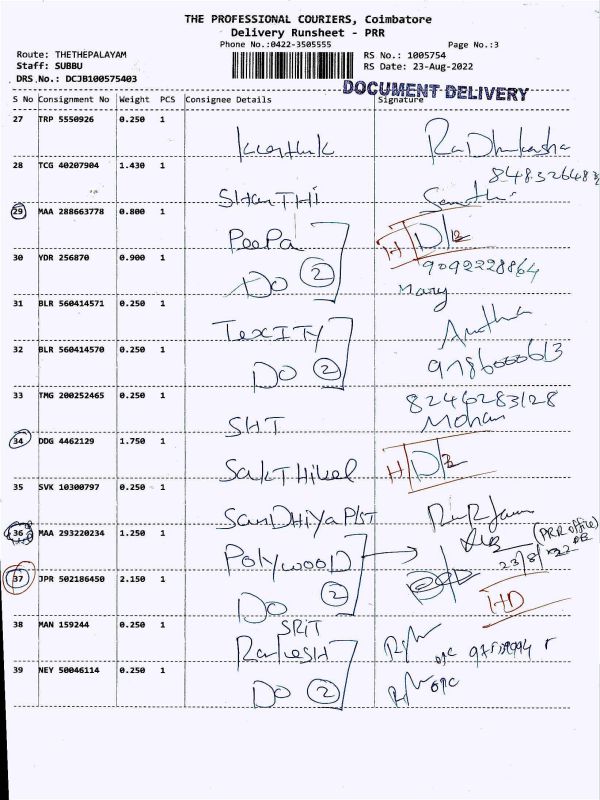 THE PROFESSIONAL COURIERS, Coimbatore
Delivery Runsheet - PRR
Phone No.:0422-3505555
Page No.:3
Route: THETHEPALAYAM
RS No.: 1005754
Staff: SUBBU
RS Date: 23-Aug-2022
DRS No.: DCJB100575403
DOCUMENT DELIVERY
S No Consignment No Weight PCS Consignee Details Signature
27 TRP 5550926 0.250 1
28 TCG 40207904 1.430 1
SHanTHi
29 MAA 288663778 0.800 1
PeePa HD
30 YDR 256870 0.900 1
9092228864
Do 2 Mary
31 BLR 560414571 0.250 1
TexciTy
32 BLR 560414570 0.250 1
Do 2
33 TMG 200252465 0.250 1
8246283128
SHT Mohan
34 DDG 4462129 1.750 1
SakTHivel HD
35 SVK 10300797 0.250 1
SanDHiya
36 MAA 293220234 1.250 1
PolywooD (PRR office)
23/8/22
37 JPR 502186450 2.150 1
Do 2 HD
38 MAN 159244 0.250 1
SRIT
RakesH
39 NEY 50046114 0.250 1
Do 2